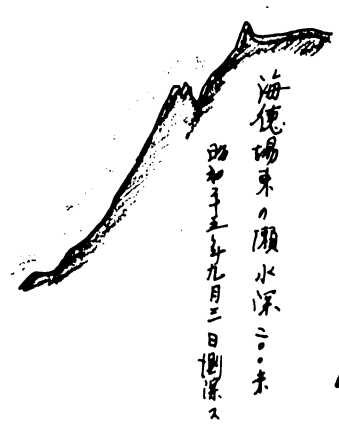 海徳場東の瀬水深二〇〇米
昭和二十五年九月三日測深ス